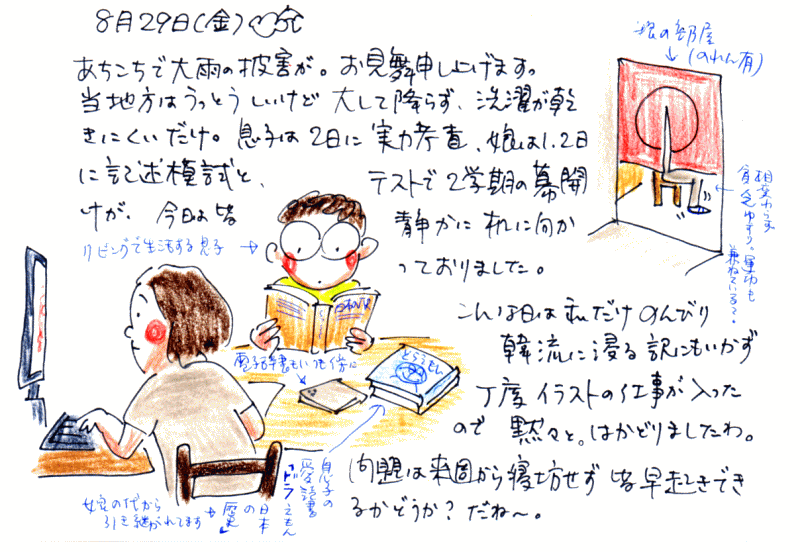 8月29日(金)
あちこちで大雨の被害が。お見舞申し上げます。
当地方はうっとうしいけど 大して降らず、洗濯が乾
きにくいだけ。息子は2日に実力考査、娘は1、2日
に記述模試と、 テストで2学期の幕開
けが。今日は皆 静かに机に向か
っておりました。
こんな日は私だけのんびり
韓流に浸る訳にもいかず
丁度イラストの仕事が入った
ので 黙々と。はかどりましたわ。
問題は来週から寝坊せず 皆早起きでき
るかどうか？だね〜。
娘の部屋
(のれん有)
相変わらず
貧乏ゆすり。運動も
兼ねている？
リビングで生活する息子
電子辞書もいつも傍に
どらえもん
息子の
愛読書
「ドラえもん
の日本
の歴史」
娘の代から
引き継がれてます